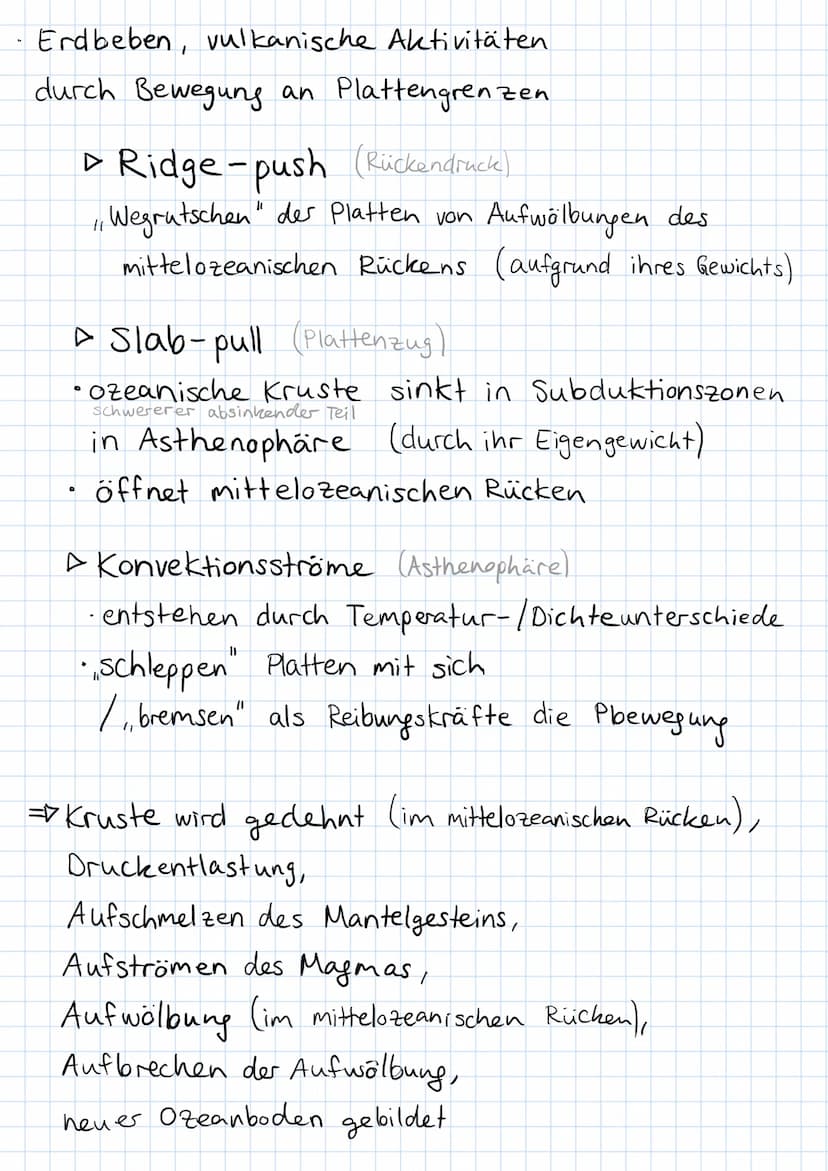 · Erdbeben, vulkanische Aktivitäten
durch Bewegung an Plattengrenzen
▷ Ridge-push (Rückendruck)
„Wegrutschen" der Platten von Aufwölbungen des
mittelozeanischen Rückens (aufgrund ihres Gewichts)
▷ Slab-pull (Plattenzug)
• ozeanische Kruste sinkt in Subduktionszonen
schwererer absinkender Teil
in Asthenophäre (durch ihr Eigengewicht)
• öffnet mittelozeanischen Rücken
▷ Konvektionsströme (Asthenophäre)
· entstehen durch Temperatur-/Dichteunterschiede
· „schleppen" Platten mit sich
/ „bremsen" als Reibungskräfte die Pbewegung
⇒ Kruste wird gedehnt (im mittelozeanischen Rücken),
Druckentlastung,
Aufschmelzen des Mantelgesteins,
Aufströmen des Magmas,
Aufwölbung (im mittelozeanischen Rücken),
Aufbrechen der Aufwölbung,
neuer Ozeanboden gebildet